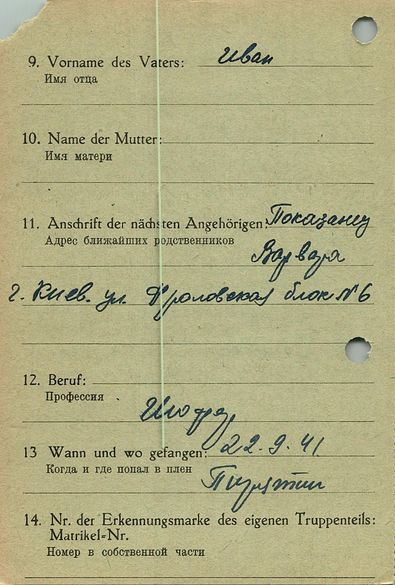 9. Vorname des Vaters: Иван
Имя отца
10. Name der Mutter:
Имя матери
11. Anschrift der nächsten Angehörigen: Показанец
Адрес ближайших родственников
Варвара
г. Киев. ул. Фроловская блок № 6
12. Beruf:
Профессия
Шофер
13 Wann und wo gefangen: 22.9.41
Когда и где попал в плен
Пирятин
14. Nr. der Erkennungsmarke des eigenen Truppenteils:
Matrikel-Nr.
Номер в собственной части